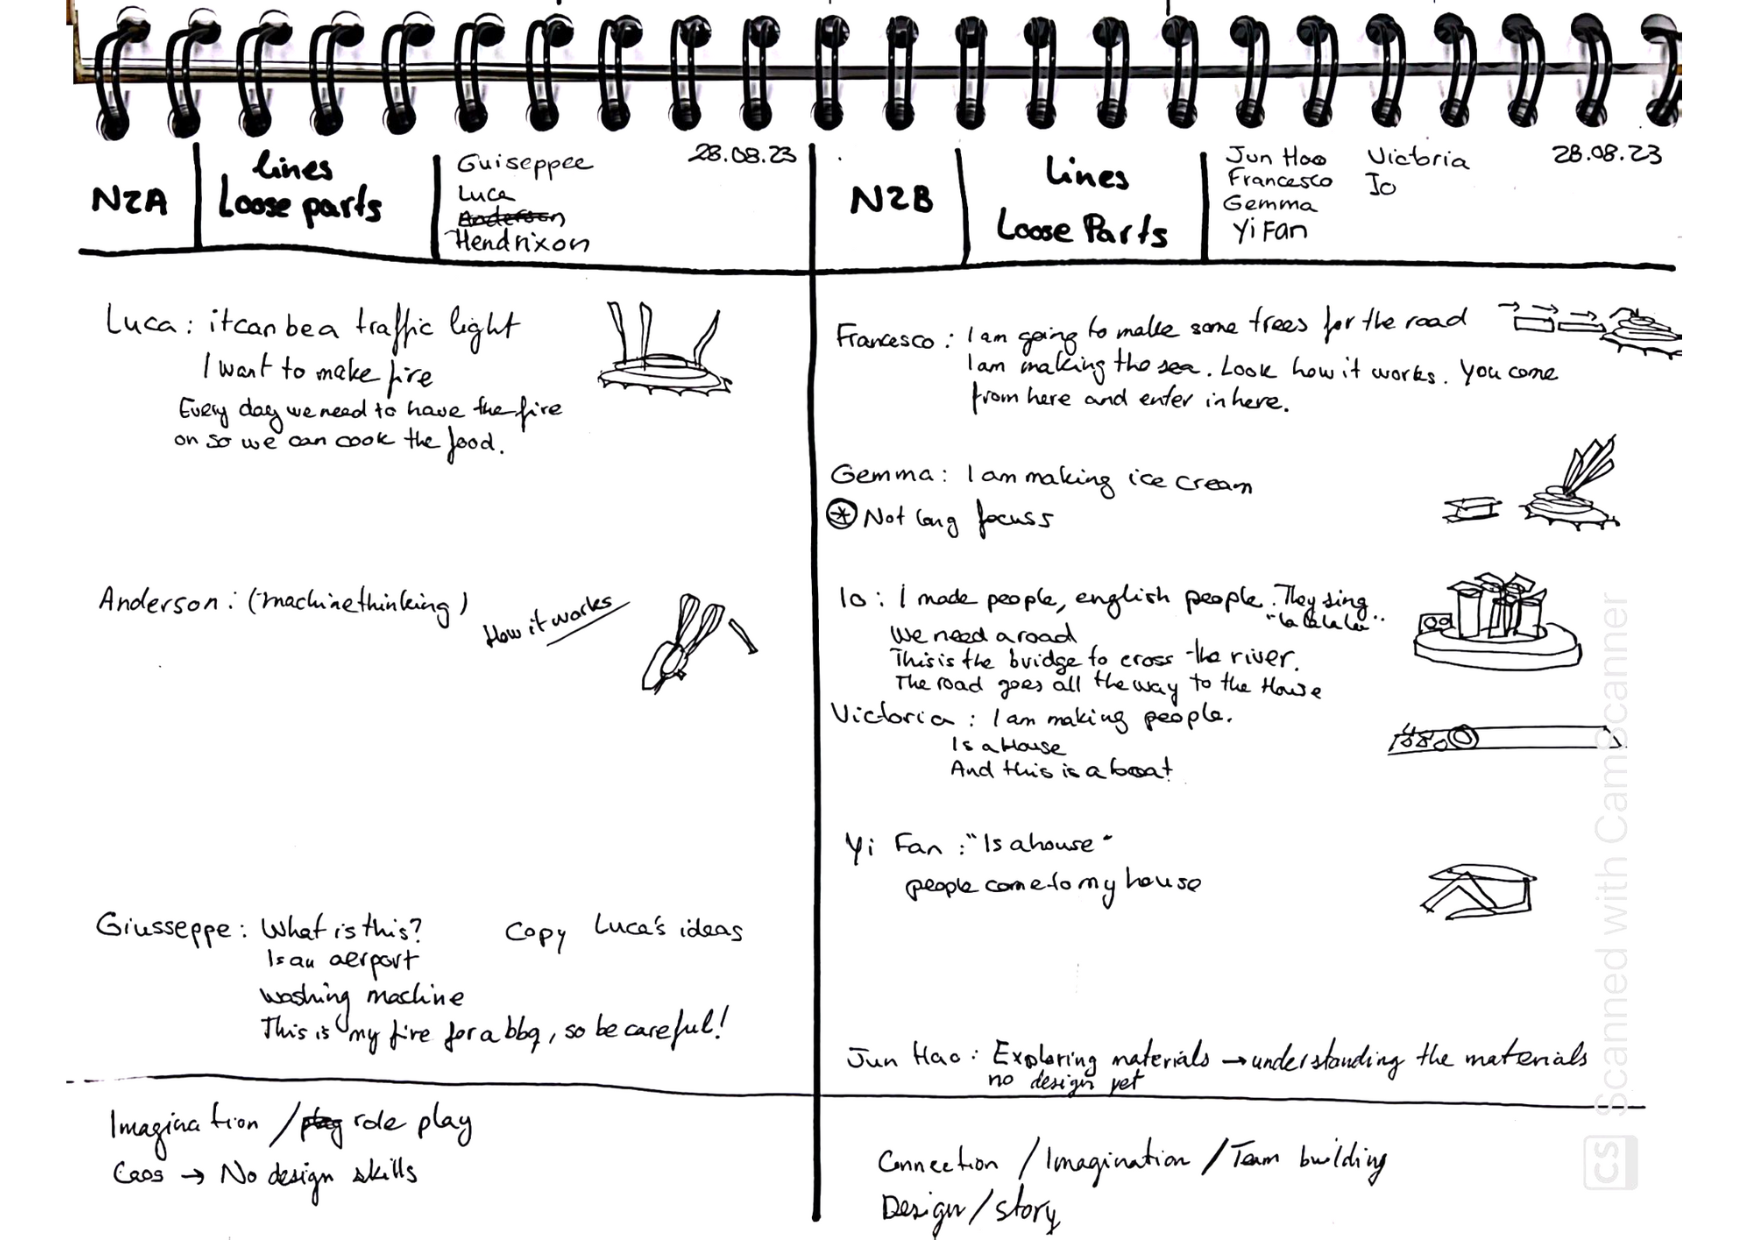 N2A
Lines
Loose parts
Guiseppee
Luca
Anderson
Hendrixon
28.08.23
Luca: it can be a traffic light
I want to make fire
Every day we need to have the fire
on so we can cook the food.
Anderson: (machine thinking)
How it works
Giusseppe: What is this?
Copy Luca's ideas
Is an aerport
washing machine
This is my fire for a bbq, so be careful!
Imagination / play role play
Caos → No design skills
N2B
Lines
Loose Parts
Jun Hao
Francesco
Gemma
Yi Fan
Victoria
Io
28.08.23
Francesco: I am going to make some trees for the road
I am making the sea. Look how it works. You come
from here and enter in here.
Gemma: I am making ice cream
* Not long focuss
Io: I made people, english people. They sing
"la la la la"
We need a road
This is the bridge to cross the river.
The road goes all the way to the House
Victoria: I am making people.
Is a House
And this is a boat
Yi Fan: "Is a house"
people come to my house
Jun Hao: Exploring materials → understanding the materials
no design yet
Connection / Imagination / Team building
Design / story
CS Scanned with CamScanner